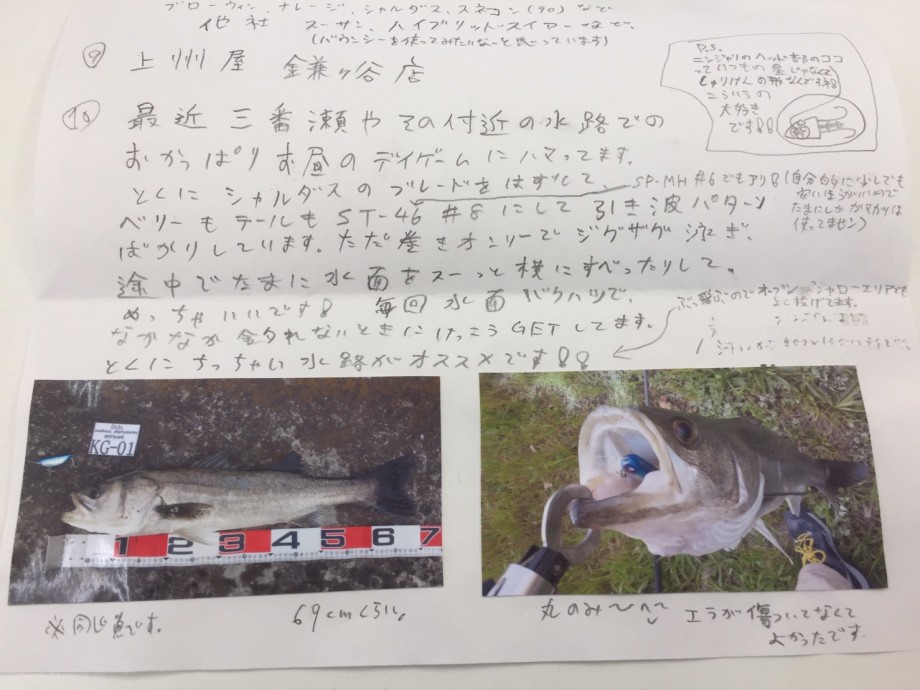 ブローウィン、ナレージ、シャルダス、スネコン(90)など
他社 スーサン、ハイブリッドスイマーなど。
(バウンシーを使ってみたいなーと思っています)
⑨ 上州屋 鎌ヶ谷店
P.S.
ニンジャリのヘッド部のココ
っていつもの
しゅりけんの形なんですね
こういうの
大好き
です!!
⑩ 最近三番瀬やその付近の水路での
おかっぱりお昼のデイゲームにハマってます。
とくにシャルダスのブレードをはずして、
SP-MH #6でもアリ!(自分的に少しでも
安いほうがいいので
たまにしかがまかつは
使ってません)
ベリーもテールもST-46 #8にして引き波パターン
ばかりしています。ただ巻きオンリーでジグザグ泳ぎ、
途中でたまに水面をスーっと横にすべったりして。
めっちゃいいです! 毎回水面バクハツで、
なかなか釣れないときにけっこうGETしてます。
とくにちっちゃい水路がオススメです!!
ぶっ飛ぶのでオープンシャローエリアでも
よく投げてます。
KG-01
1 2 3 4 5 6 7
※同じ魚です。
69cmくらい。
丸のみ〜
エラが傷ついてなくて
よかったです.